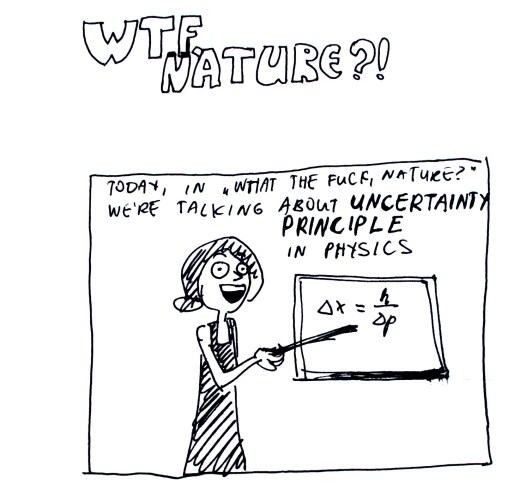 WTF,
NATURE?!
TODAY, IN „WHAT THE FUCK, NATURE?"
WE'RE TALKING ABOUT UNCERTAINTY
PRINCIPLE
IN PHYSICS
Δx = ℏ/Δp